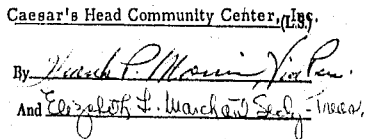 Caesar's Head Community Center, Inc.
(L.S.)
By Frank P. Morris Vice Pres.
And Elizabeth L. Marchant Secty-Treas.